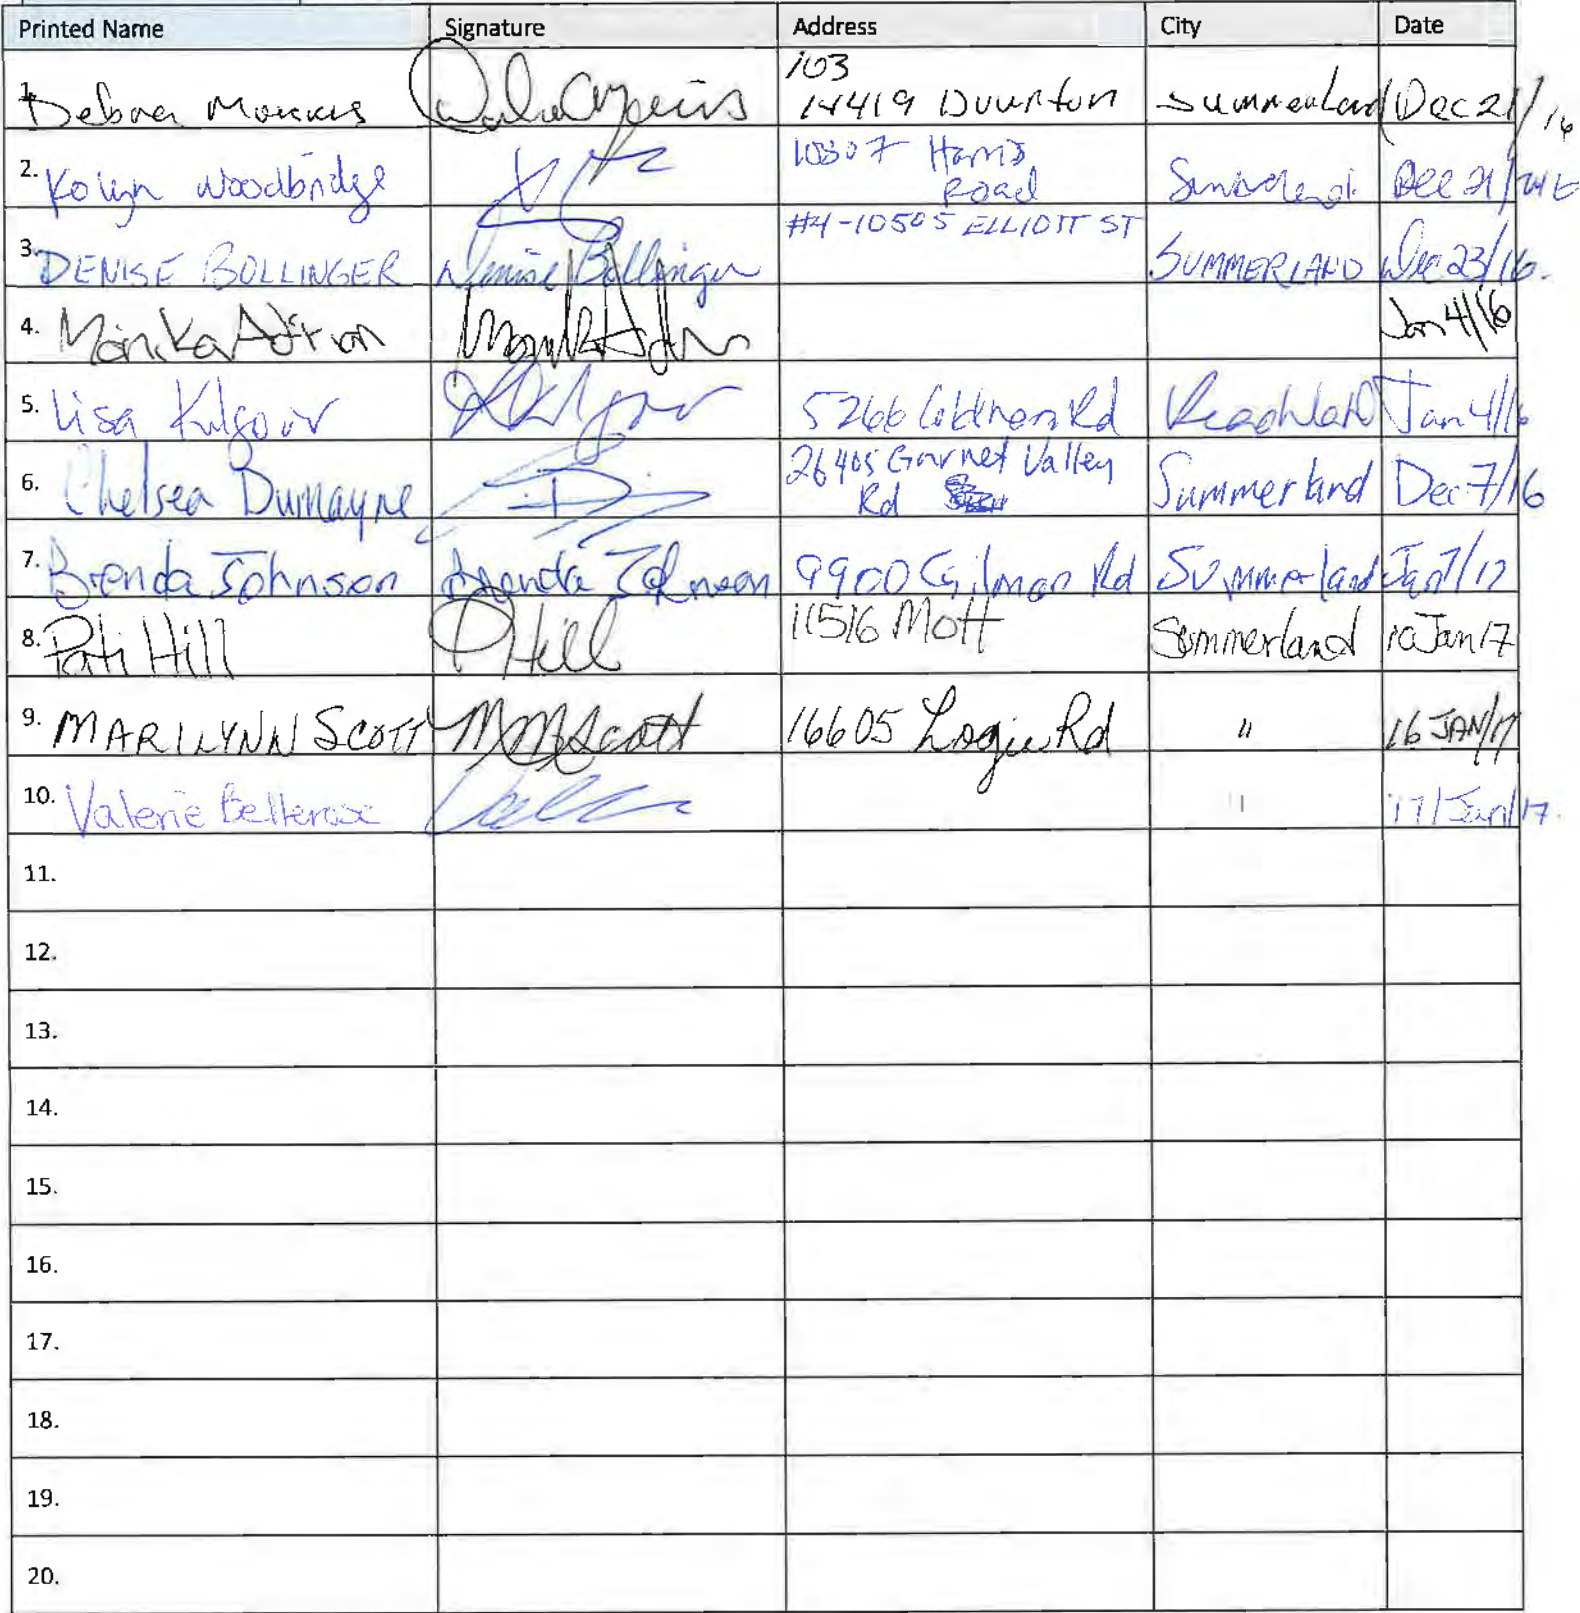 Printed Name Signature Address City Date
1. 103
14419 Summerland Dec 21/16
2. Woodbridge 10307 Harris Road Dec 21/
3. DENISE BOLLINGER Denise Bollinger #4-10505 ELLIOTT ST SUMMERLAND Dec 23/16.
4. Monika Jan 4/16
5. Lisa Kilgour 5266 Rd Peachland Jan 4/16
6. Chelsea Dumayne 26405 Garnet Valley Rd Summerland Dec 7/16
7. Brenda Johnson Brenda Johnson 9900 Gilman Rd Summerland Jan 7/17
8. Pati Hill P Hill 11516 Mott Summerland 10 Jan 17
9. MARILYNN SCOTT MMScott 16605 Logie Rd " 16 JAN/17
10. Valerie Bellerose " 17/Jan/17.
11.
12.
13.
14.
15.
16.
17.
18.
19.
20.